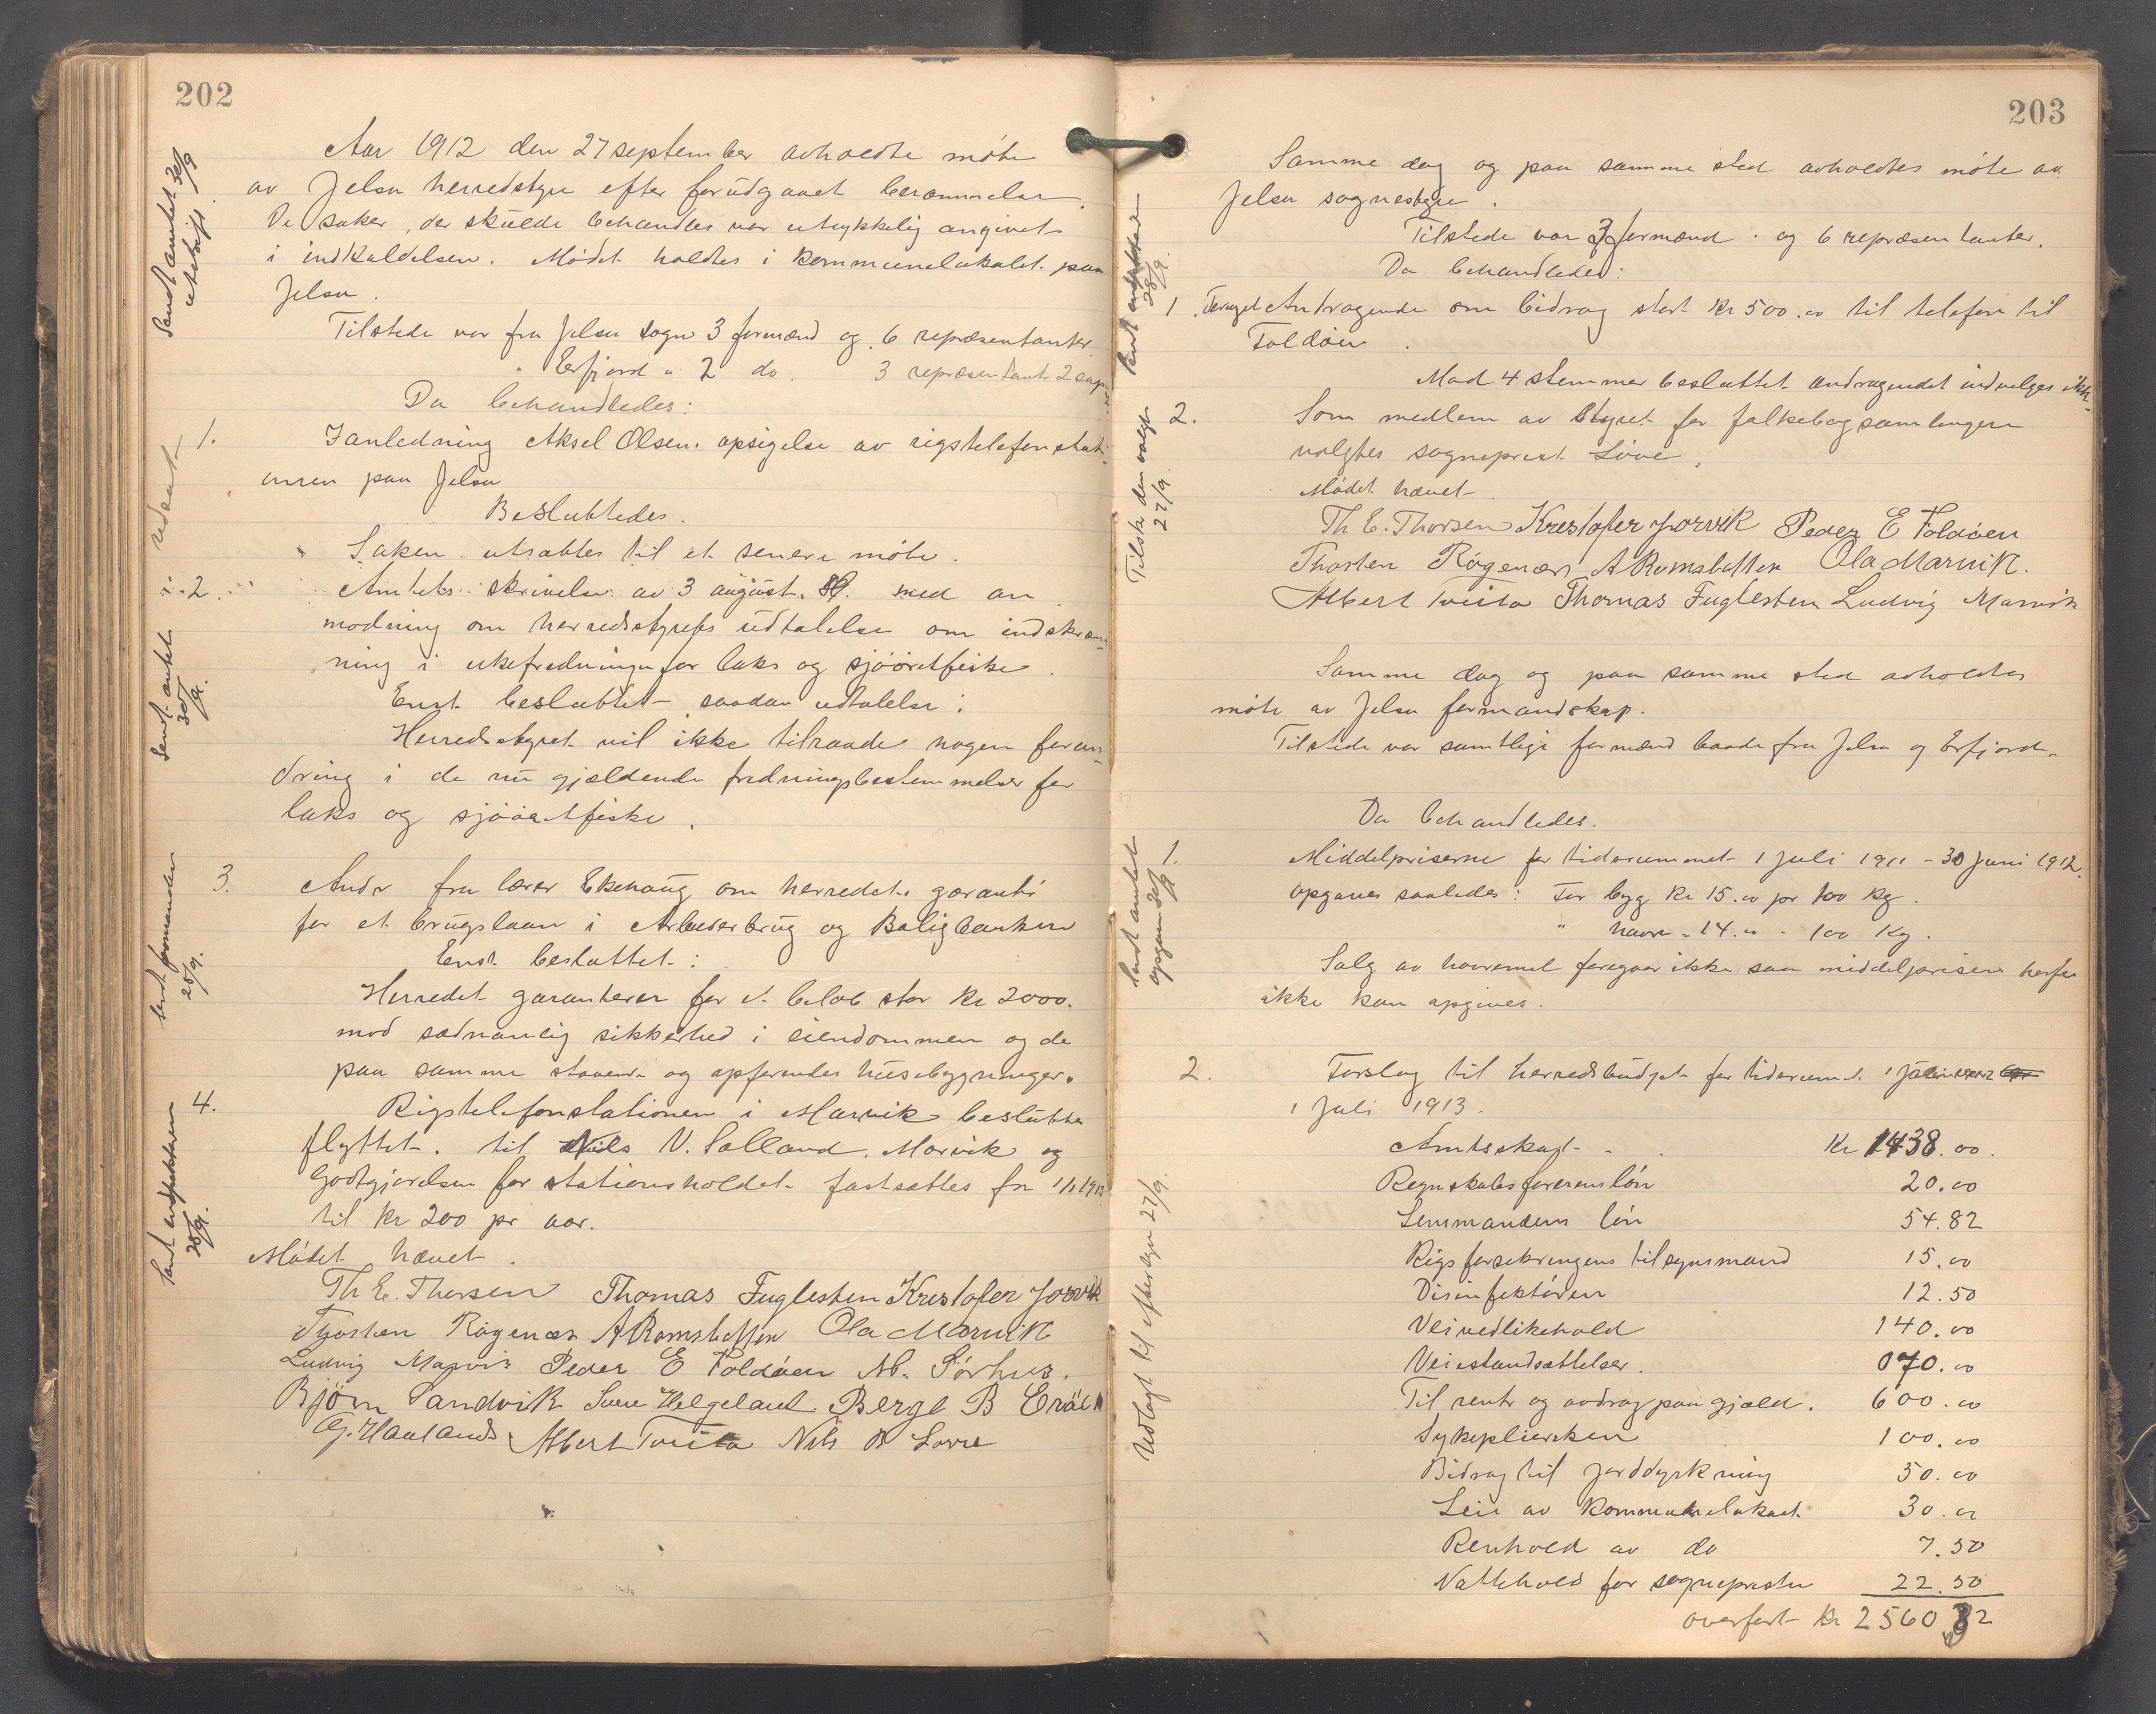 202
Aar 1912 den 27 september avholdtes møte
av Jelsa herredstyre efter forudgaaet berammelse.
De saker, der skulde behandles var utrykkelig angivet
i indkaldelsen. Mødet holdtes i kommunelokalet paa
Jelsa.
Tilstede var fra Jelsa sogn 3 formænd og 6 repræsentanter
" Erfjord " 2 do. 3 repræsentanter 2 supl.
Da behandledes:
1. I anledning Aksel Olsens opsigelse av rigstelefonstati-
onen paa Jelsa
Besluttedes.
Saken utsættes til et senere møte.
2. Amtets skrivelse av 3 august d.a. med an
modning om herredsstyrets udtalelse om indskrænk-
ning i ukefredningen for laks og sjøøretfiske.
Enst. besluttet saadan udtalelse:
Herredsstyret vil ikke tilraade nogen foran-
dring i de nu gjældende fredningsbestemmelser for
laks og sjøøretfiske.
3. Andr fra lærer Ekehaug om herredets garanti
for et brugslaan i Arbeiderbrug og Boligbanken
Enst. besluttet:
Herredet garanterer for et beløb stor kr 2000.
mod sedvanlig sikkerhed i eiendommen og de
paa samme staaende og opførendes husebygninger.
4. Rigstelefonstationen i Marvik besluttes
flyttet til Nils V. Salland, Marvik og
godtgjørelsen for stationsholdet fastsættes fra 1/1 1913
til kr 200 pr aar.
Mødet hævet.
Th E. Thorsen Thomas Fuglesten Kristofer Jorvik
Thorsten Røgenæs A Romsbotten Ola Marvik
Ludvig Marvik Peder E Foldøen M. Sørhus.
Bjørn Sandvik Svein Helgeland Berge B Eråen
G. Haaland Albert Tveita Nils B Lovra
Sendt amtet 30/9
utskrift.
utsat
Sendt amtet
30/9.
Sendt formanden
28/9.
Sendt inspektøren
28/9.
203
Samme dag og paa samme sted avholdtes møte av
Jelsa sognestyre.
Tilstede var 3 formænd og 6 repræsentanter.
Da behandledes:
1. Andragende om bidrag stort kr 500.00 til telefon til
Foldøen.
Mod 4 stemmer besluttet andragendet indvilges ikke.
2. Som medlem av styret for folkebogsamlingen
valgtes sogneprest Løve.
Mødet hævet.
Th E. Thorsen Kristofer Jorvik Peder E Foldøen
Thorsten Røgenæs A Romsbotten Ola Marvik.
Albert Tveita Thomas Fuglesten Ludvig Marvik
Samme dag og paa samme sted avholdtes
møte av Jelsa formandskap.
Tilstede var samtlige formænd baade fra Jelsa og Erfjord.
Da behandledes.
1. Middelpriserne for tidsrummet 1 juli 1911 - 30 juni 1912
opgaves saaledes: For byg kr 15.00 pr 100 kg.
" havre " 14.00 - 100 kg.
Salg av havremel foregaar ikke saa middelprisen herfor
ikke kan opgives.
2. Forslag til herredsbudget for tidsrummet 1 januar
1 Juli 1913.
Amtsskat - - Kr 1438.00.
Regnskabsførerens løn 20.00
Lensmandens løn 54.82
Rigsforsikringens tilsynsmand 15.00
Disinfektøren 12.50
Veivedlikehold 140.00
Veiistandsættelser. 070.00
Til rente og avdrag paa gjæld. 600.00
Sykepleiersken 100.00
Bidrag til jorddyrkning 50.00
Leie av kommunelokalet 30.00
Renhold av do 7.50
Nattehold for sognepresten 22.50
overført Kr 2560 32
Sendt inspektøren
28/9.
Tilstr. den valgte
27/9.
Sendt amtet
opgave 30/9
Utlagt til eftersyn 27/9.